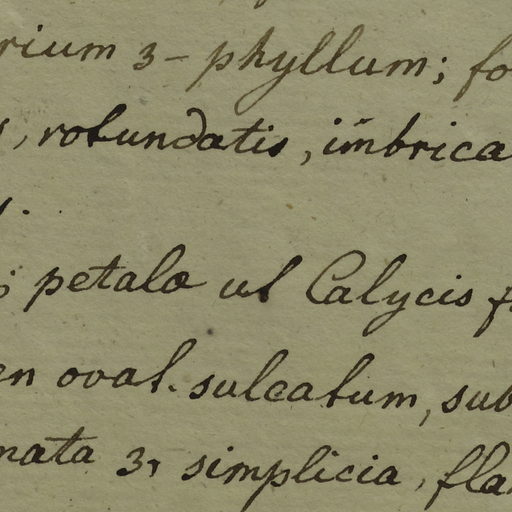 rium 3-phyllum; fo
s, rotundatis, im̄brica
s.
; petala ut Calycis f
en oval. sulcatum, sub
mata 3, simplicia, fla